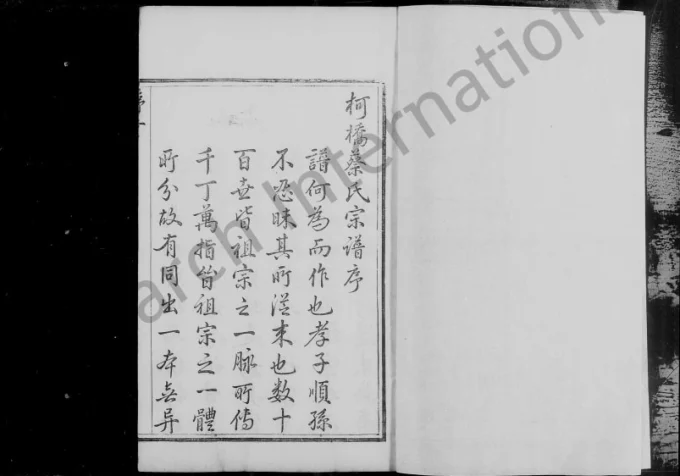 柯橋蔡氏宗譜序
譜何為而作也孝子順孫
不忍昧其所從来也数十
百世皆祖宗之一脉所傳
千丁萬指皆祖宗之一體
所分故有同出一本喜异
arch International